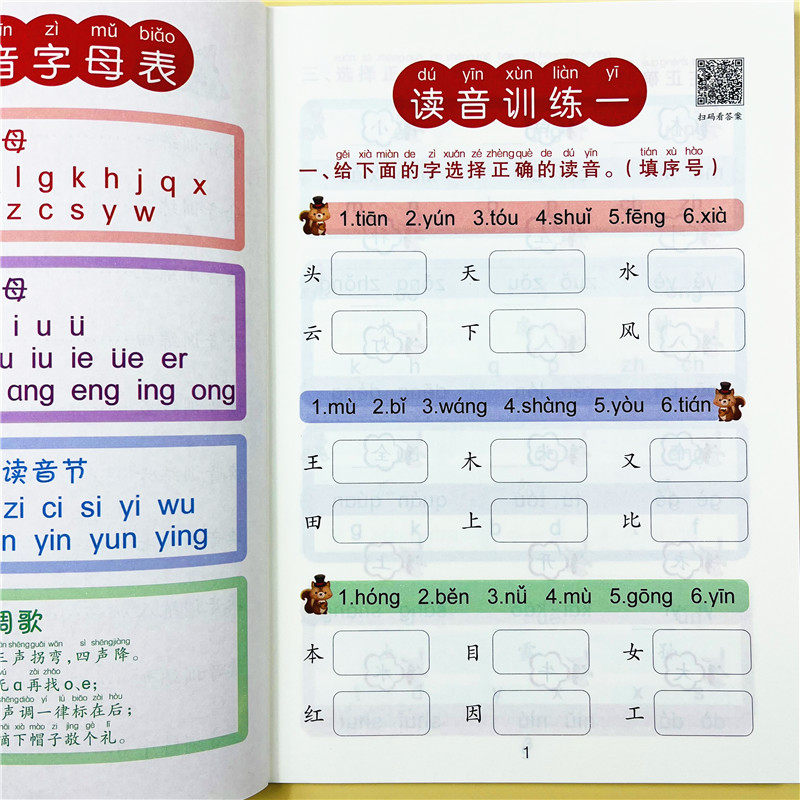 īn zì mǔ biǎo
音字母表
母
l g k h j q x
z c s y w
母
i u ü
u iu ie üe er
ang eng ing ong
读音节
zi ci si yi wu
n yin yun ying
调歌
三声拐弯,四声降。
无ɑ再找o、e;
声调一律标在后;
摘下帽子敬个礼。
dú yīn xùn liàn yī
读音训练一
扫码看答案
gěi xià miàn de zì xuǎn zé zhèng què de dú yīn tián xù hào
一、给下面的字选择正确的读音。(填序号)
1.tiān 2.yún 3.tóu 4.shuǐ 5.fēng 6.xià
头 天 水
云 下 风
1.mù 2.bǐ 3.wáng 4.shàng 5.yòu 6.tián
王 木 又
田 上 比
1.hóng 2.běn 3.nǚ 4.mù 5.gōng 6.yīn
本 目 女
红 因 工
1